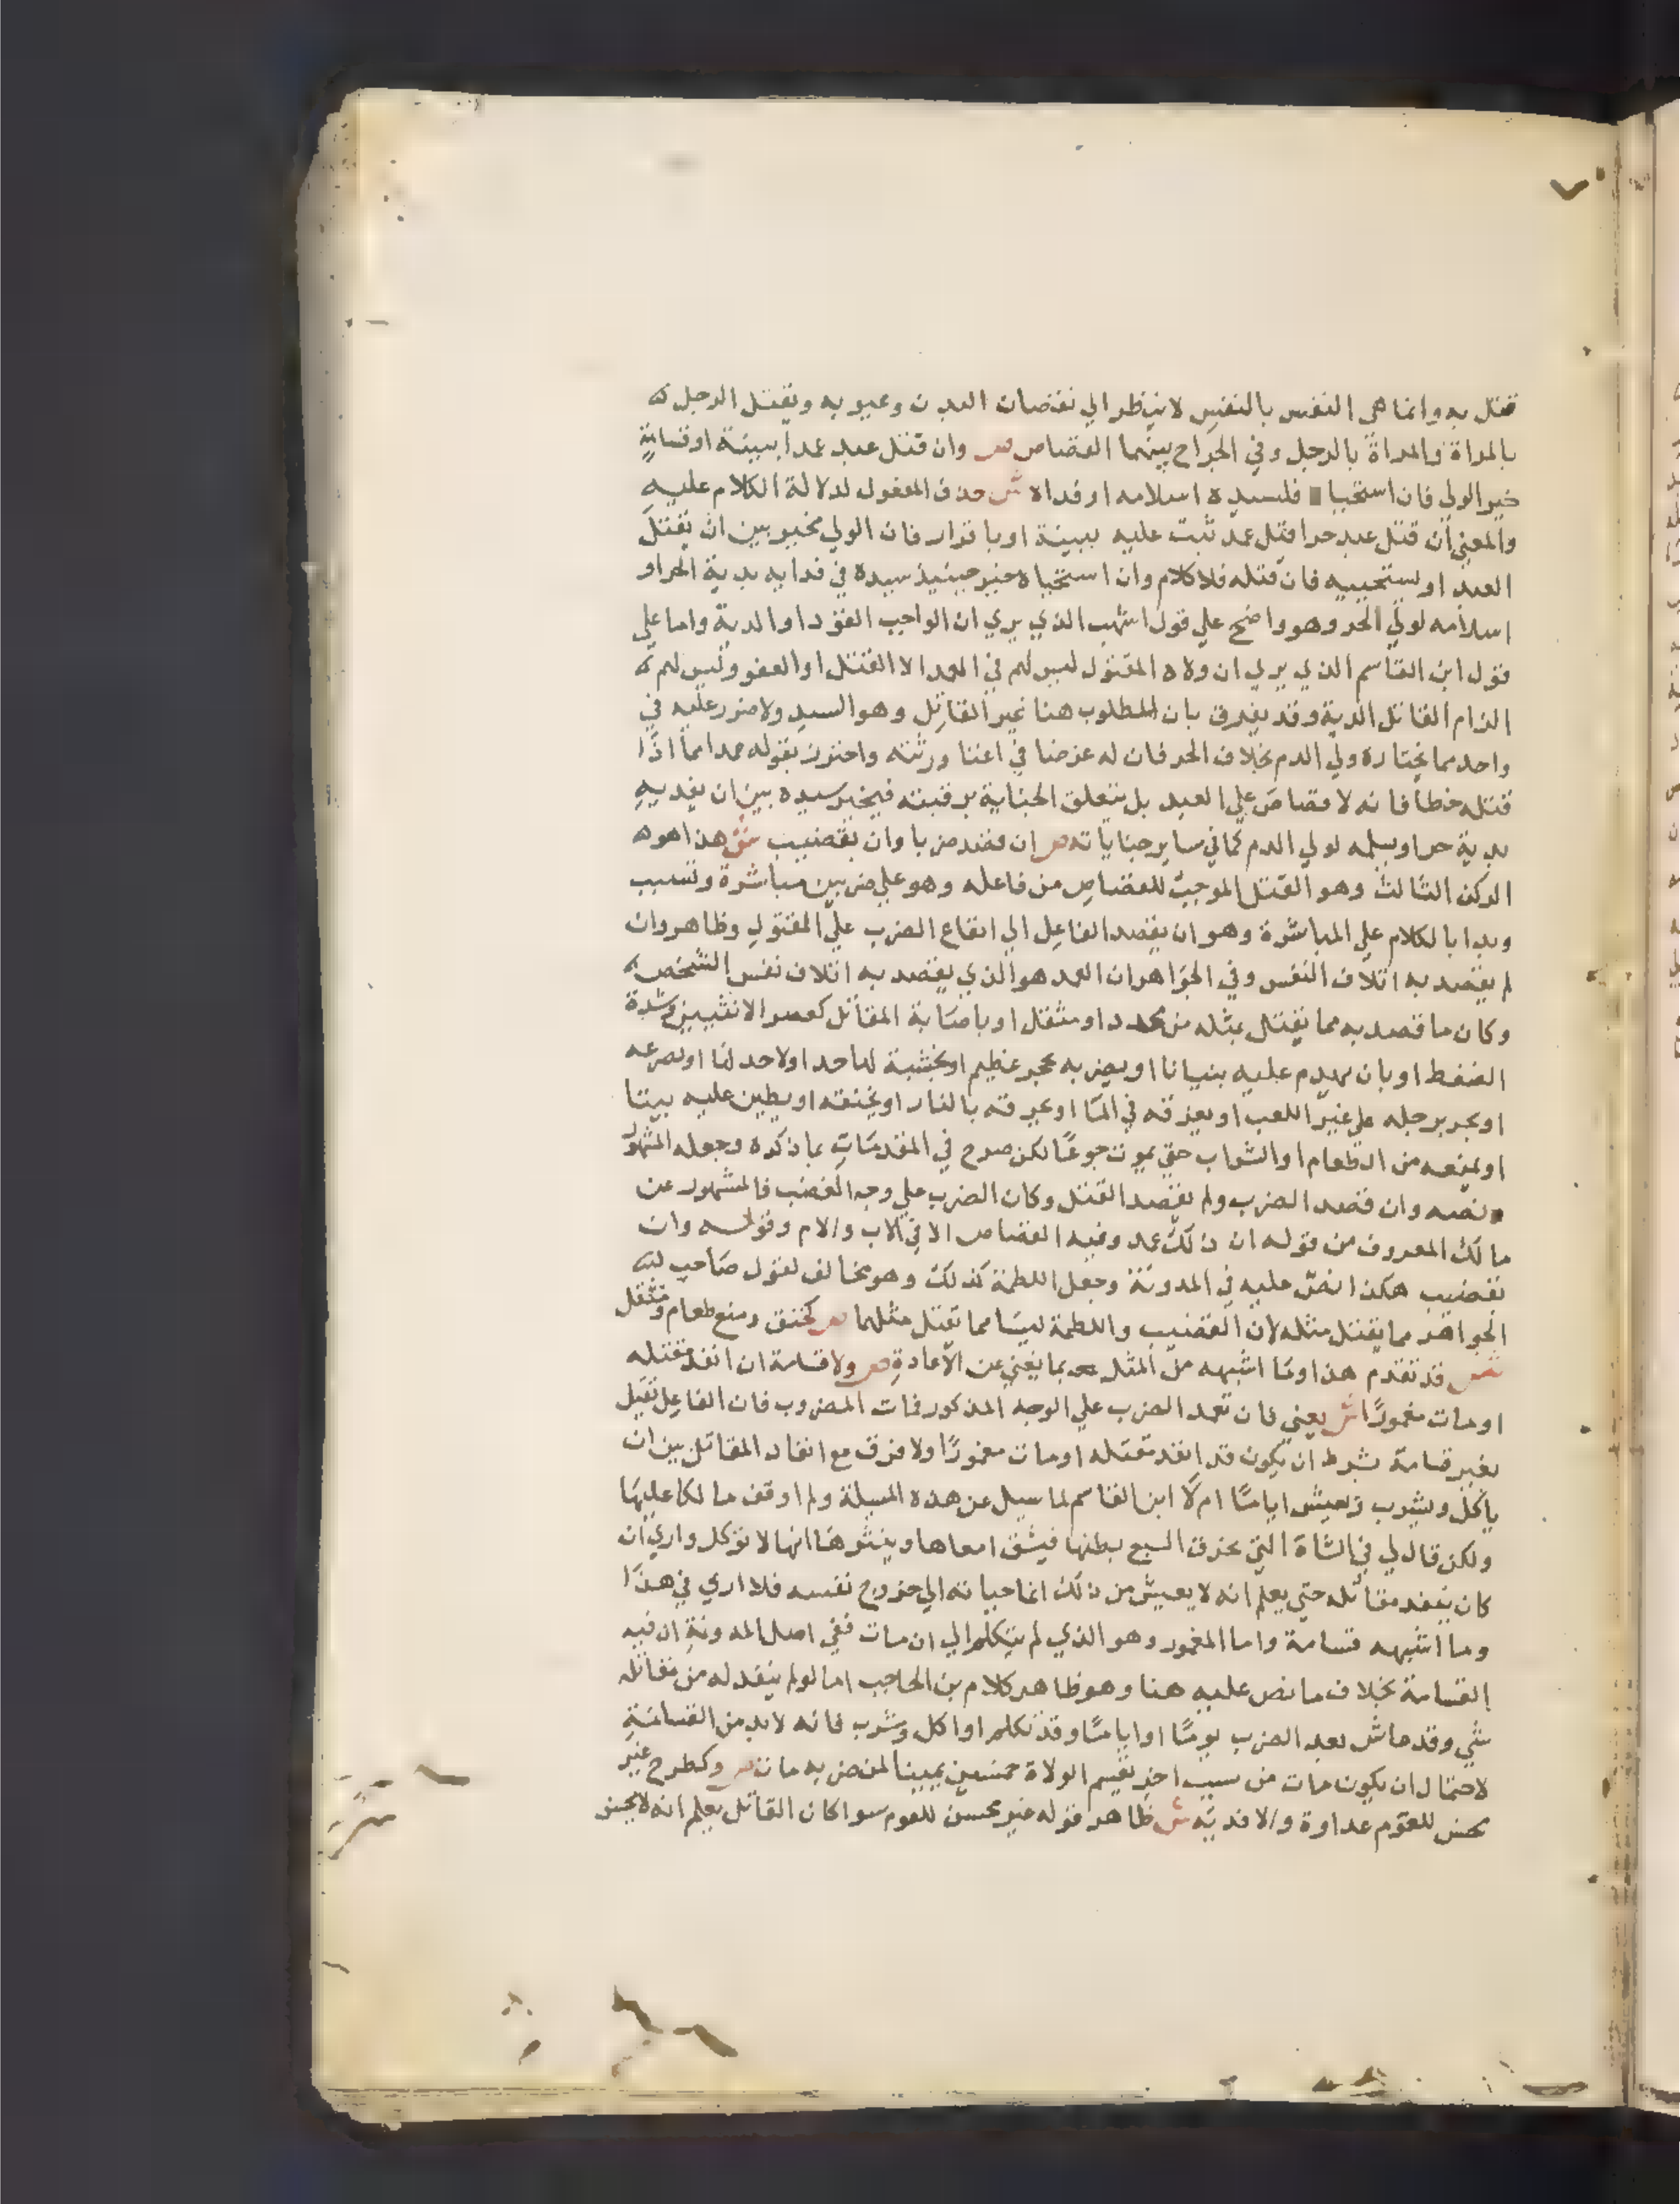 قتل به وانما هي النفس بالنفس لا ينظر الي نقصان البدن وعيوبه ويقتل الرجل
بالمراة والمراة بالرجل وفي الجراح بينهما القصاص ص وان قتل عبد عمدا ببينة او قسامة
خير الولي فان استحيا فلسيده اسلامه او فداه ش حذف المفعول لدلالة الكلام عليه
والمعني ان قتل عبد حرا قتل عمد ثبت عليه ببينة او باقرار فان الولي مخير بين ان يقتل
العبد او يستحييه فان قتله فلا كلام وان استحياه خير حينيذ سيده في فدايه بدية الحر او
اسلامه لولي الحر وهو واضح علي قول اشهب الذي يري ان الواجب القود او الدية واما علي
قول ابن القاسم الذي يري ان ولاه المقتول ليس لهم في العمد الا القتل او العفو وليس لهم
الزام القاتل الدية وقد يفرق بان المطلوب هنا غير القاتل وهو السيد ولا ضرر عليه في
واحد مما يختاره ولي الدم بخلاف الحر فان له غرضا في اغنا ورثته واحترز بقوله عمدا مما اذا
قتله خطا فانه لا قصاص علي العبد بل يتعلق الجناية برقبته فيخير سيده بين ان يفديه
بدية حر او يسلمه لولي الدم كما في ساير جناياته ص ان قصد ضربا وان بقضيب ش هذا هو
الركن الثالث وهو القتل الموجب للقصاص من فاعله وهو علي ضربين مباشرة وتسبب
وبدا بالكلام علي المباشرة وهو ان يقصد الفاعل الي ايقاع الضرب علي المقتول وظاهر وان
لم يقصد به اتلاف النفس وفي الجواهر ان العمد هو الذي يقصد به اتلاف نفس الشخص
وكان ما قصد به مما يقتل بمثله من محدد او مثقل او باصابة المقاتل كعصر الانثيين وشدة
الضغط او بان يهدم عليه بنيانا او يضربه بحجر عظيم او بخشبة لها حد او لا حد لها او يصرعه
او يجر برجله علي غير اللعب او يغرقه في الما او يحرقه بالنار او يخنقه او يطين عليه بيتا
او يمنعه من الطعام او الشراب حتي يموت جوعا لكن صرح في المقدمات بما ذكره وجعله المشهور
ونصه وان قصد الضرب ولم يقصد القتل وكان الضرب علي وجه الغضب فالمشهور عن
مالك المعروف من قوله ان ذلك عمد وفيه القصاص الا في الاب والام وقوله وان
بقضيب هكذا نص عليه في المدونة وجعل اللطمة كذلك وهو مخالف لقول صاحب
الجواهر مما يقتل مثله لان القضيب واللطمة ليسا مما يقتل مثلهما ص كخنق ومنع طعام ومثقل
ش قد تقدم هذا وما اشبهه من المثل بما يغني عن الاعادة ص ولا قسامة ان انفذ مقتله
او مات مغمورا ش يعني فان تعمد الضرب علي الوجه المذكور فمات المضروب فان الفاعل يقتل
بغير قسامة بشرط ان يكون قد انفذ مقتله او مات مغمورا ولا فرق مع انفاذ المقاتل بين ان
ياكل ويشرب ويعيش اياما ام لا ابن القاسم لما سيل عن هذه المسيلة ولم اوقف مالكا عليها
ولكن قال لي في الشاة التي يخرق السبع بطنها فيشق امعاها وينثرها انها لا توكل واري ان
كان ينفد مقاتله حتي يعلم انه لا يعيش من ذلك انما حياته الي خروج نفسه فلا اري في هذا
وما اشبهه قسامة واما المغمور وهو الذي لم يتكلم الي ان مات ففي اصل المدونة ان فيه
القسامة بخلاف ما نص عليه هنا وهو ظاهر كلام بن الحاجب اما لو لم ينفد له من مقاتله
شي وقد عاش بعد الضرب يوما او اياما وقد تكلم او اكل وشرب فانه لا بد من القسامة
لاحتمال ان يكون مات من سبب اخر تقسم الولاة خمسين يمينا لمن ضربه مات ص وكطرح غير
محسن للعوم عداوة والا فديته ش ظاهر قوله غير محسن للعوم سوا كان القاتل يعلم انه لا يحسن